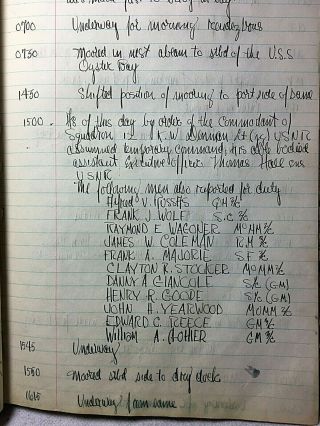 0700 Underway for morning rendezvous
0730 Moored in nest abeam to stbd of the U.S.S.
Oyster Bay
1430 Shifted position of mooring to port side of same
1500 - As of this day by order of the commandant of
Squadron 12 - K. W. Lt (jg) USNR
assumed temporary command, His duty became
assistant Executive officer Thomas Hall ens
USNR
The following men also reported for duty
Alfred V.
FRANK J. WOLF S.C. 3/c
RAYMOND E WAGONER MoMM 3/c
JAMES W. COLEMAN R.M 3/c
FRANK A. MAJORIE S.F 3/c
CLAYTON R. STOCKER MoMM 3/c
DANNY A GIANCOLE S1/c (GM)
HENRY R. GOODE S1/c (GM)
JOHN H. YEARWOOD MoMM 3/c
EDWARD C. REECE GM 3/c
William A. GM 3/c
1545 Underway
1550 Moored stbd side to dry dock
1615 Underway from same